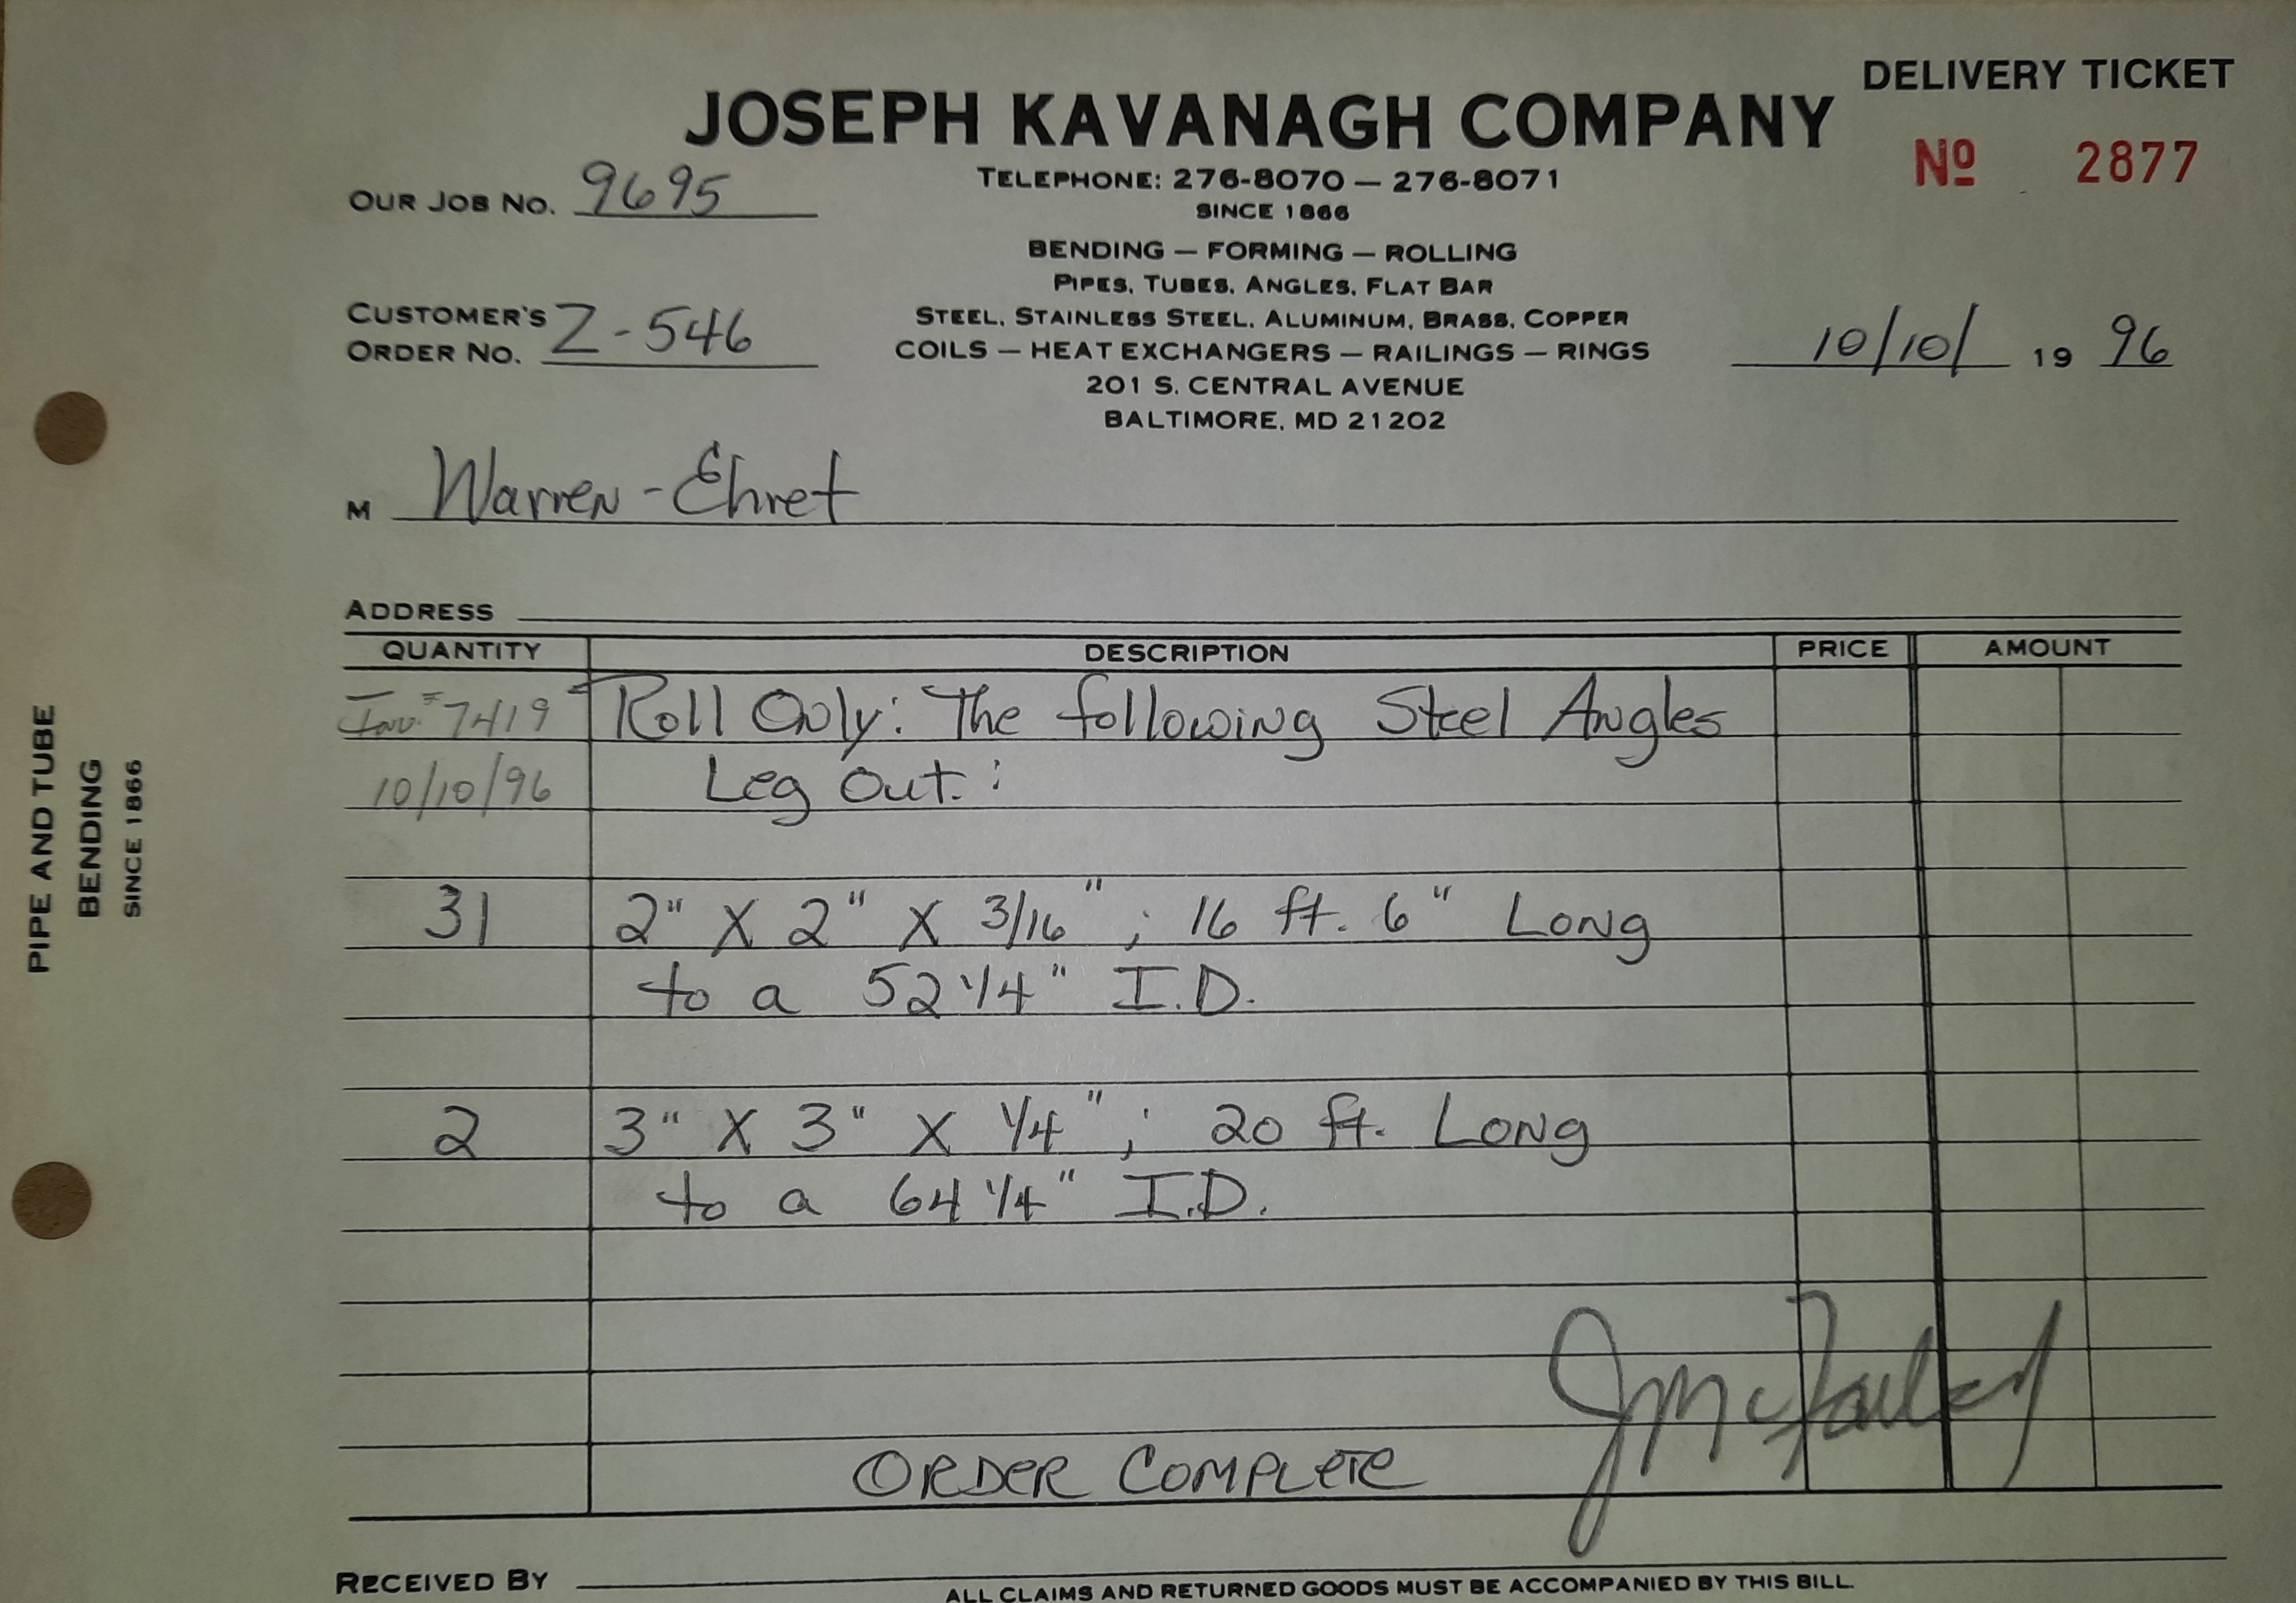 DELIVERY TICKET
JOSEPH KAVANAGH COMPANY
Nº 2877
TELEPHONE: 276-8070 — 276-8071
OUR JOB NO. 9695
SINCE 1866
BENDING — FORMING — ROLLING
PIPES, TUBES, ANGLES, FLAT BAR
CUSTOMER'S ORDER NO. Z-546
STEEL, STAINLESS STEEL, ALUMINUM, BRASS, COPPER
COILS — HEAT EXCHANGERS — RAILINGS — RINGS
10/10/ 19 96
201 S. CENTRAL AVENUE
BALTIMORE, MD 21202
M Warren-Ehret
ADDRESS
QUANTITY DESCRIPTION PRICE AMOUNT
Inv.# 7419 Roll Only: The following Steel Angles
10/10/96 Leg Out:
31 2" X 2" X 3/16"; 16 ft. 6" Long
to a 52 1/4" I.D.
2 3" X 3" X 1/4"; 20 ft. Long
to a 64 1/4" I.D.
ORDER COMPLETE
RECEIVED BY
ALL CLAIMS AND RETURNED GOODS MUST BE ACCOMPANIED BY THIS BILL.
PIPE AND TUBE
BENDING
SINCE 1866